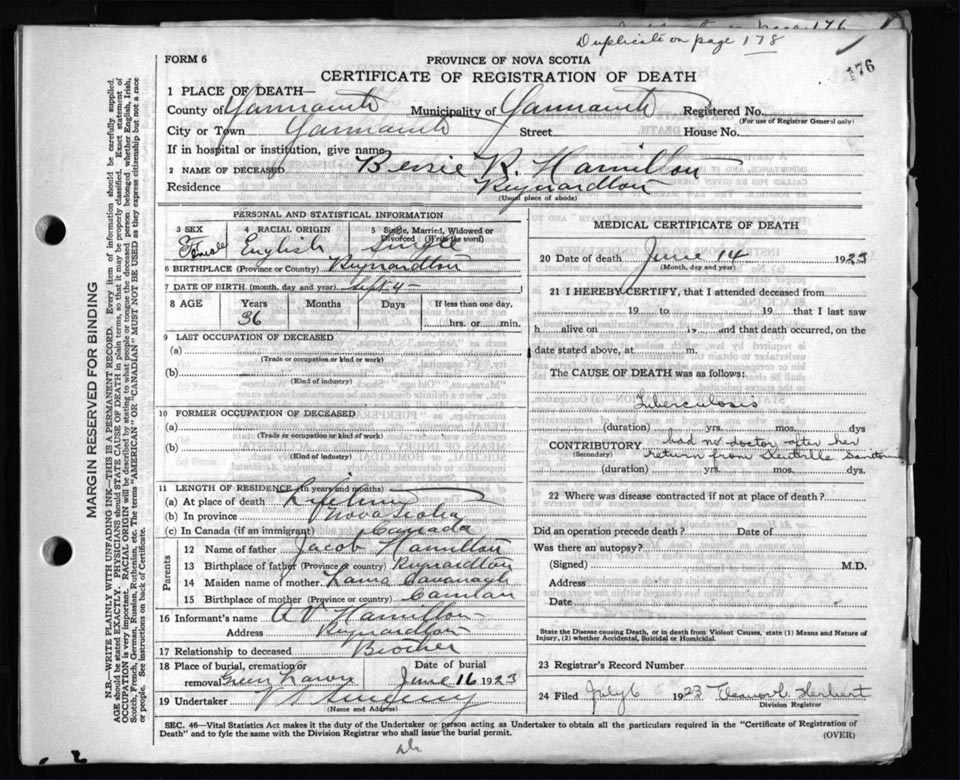 Duplicate on page 178
176
FORM 6
PROVINCE OF NOVA SCOTIA
CERTIFICATE OF REGISTRATION OF DEATH
1 PLACE OF DEATH—
County of Yarmouth Municipality of Yarmouth Registered No.
(For use of Registrar General only)
City or Town Yarmouth Street House No.
If in hospital or institution, give name
2 NAME OF DECEASED Bessie R. Hamilton
Residence Reynardton
(Usual place of abode)
PERSONAL AND STATISTICAL INFORMATION
3 SEX 4 RACIAL ORIGIN 5 Single, Married, Widowed or Divorced (Write the word)
Female English Single
6 BIRTHPLACE (Province or Country) Reynardton
7 DATE OF BIRTH (month, day and year) Sept 4-
8 AGE Years Months Days If less than one day,
36 hrs. or min.
9 LAST OCCUPATION OF DECEASED
(a)
(Trade or occupation or kind or work)
(b)
(Kind of industry)
10 FORMER OCCUPATION OF DECEASED
(a)
(Trade or occupation or kind or work)
(b)
(Kind of industry)
11 LENGTH OF RESIDENCE (in years and months)
(a) At place of death Lifetime
(b) In province Nova Scotia
(c) In Canada (if an immigrant) Canada
Parents
12 Name of father Jacob Hamilton
13 Birthplace of father (Province or country) Reynardton
14 Maiden name of mother Cavanagh
15 Birthplace of mother (Province or country)
16 Informant's name A V Hamilton
Address Reynardton
17 Relationship to deceased Brother
18 Place of burial, cremation or removal Green Lawn Date of burial June 16 1923
19 Undertaker
(Name and Address)
MEDICAL CERTIFICATE OF DEATH
20 Date of death June 14 1923
(Month, day and year)
21 I HEREBY CERTIFY, that I attended deceased from
19 to 19 that I last saw
h alive on 19 and that death occurred, on the
date stated above, at m.
The CAUSE OF DEATH was as follows:
Tuberculosis
(duration) yrs. mos. dys
CONTRIBUTORY had no doctor after her
(Secondary) return from Kentville
(duration) yrs. mos. dys.
22 Where was disease contracted if not at place of death?
Did an operation precede death? Date of
Was there an autopsy?
(Signed) M.D.
Address
Date
State the Disease causing Death, or in death from Violent Causes, state (1) Means and Nature of Injury, (2) whether Accidental, Suicidal or Homicidal.
23 Registrar's Record Number
24 Filed July 6 1923 Herbert
Division Registrar
SEC. 46—Vital Statistics Act makes it the duty of the Undertaker or person acting as Undertaker to obtain all the particulars required in the "Certificate of Registration of
Death" and to fyle the same with the Division Registrar who shall issue the burial permit.
(OVER)
MARGIN RESERVED FOR BINDING
N.B.—WRITE PLAINLY WITH UNFADING INK—THIS IS A PERMANENT RECORD. Every item of information should be carefully supplied.
AGE should be stated EXACTLY. PHYSICIANS should STATE CAUSE OF DEATH in plain terms, so that it may be properly classified. Exact statement of
OCCUPATION is very important. RACIAL ORIGIN will be described by stating to what people or tongue the deceased person belonged whether English, Irish,
Scotch, French, German, Russian, Ruthenian, etc. The terms "AMERICAN" OR "CANADIAN" MUST NOT BE USED as they express citizenship but not a race
or people. See instructions on back of Certificate.